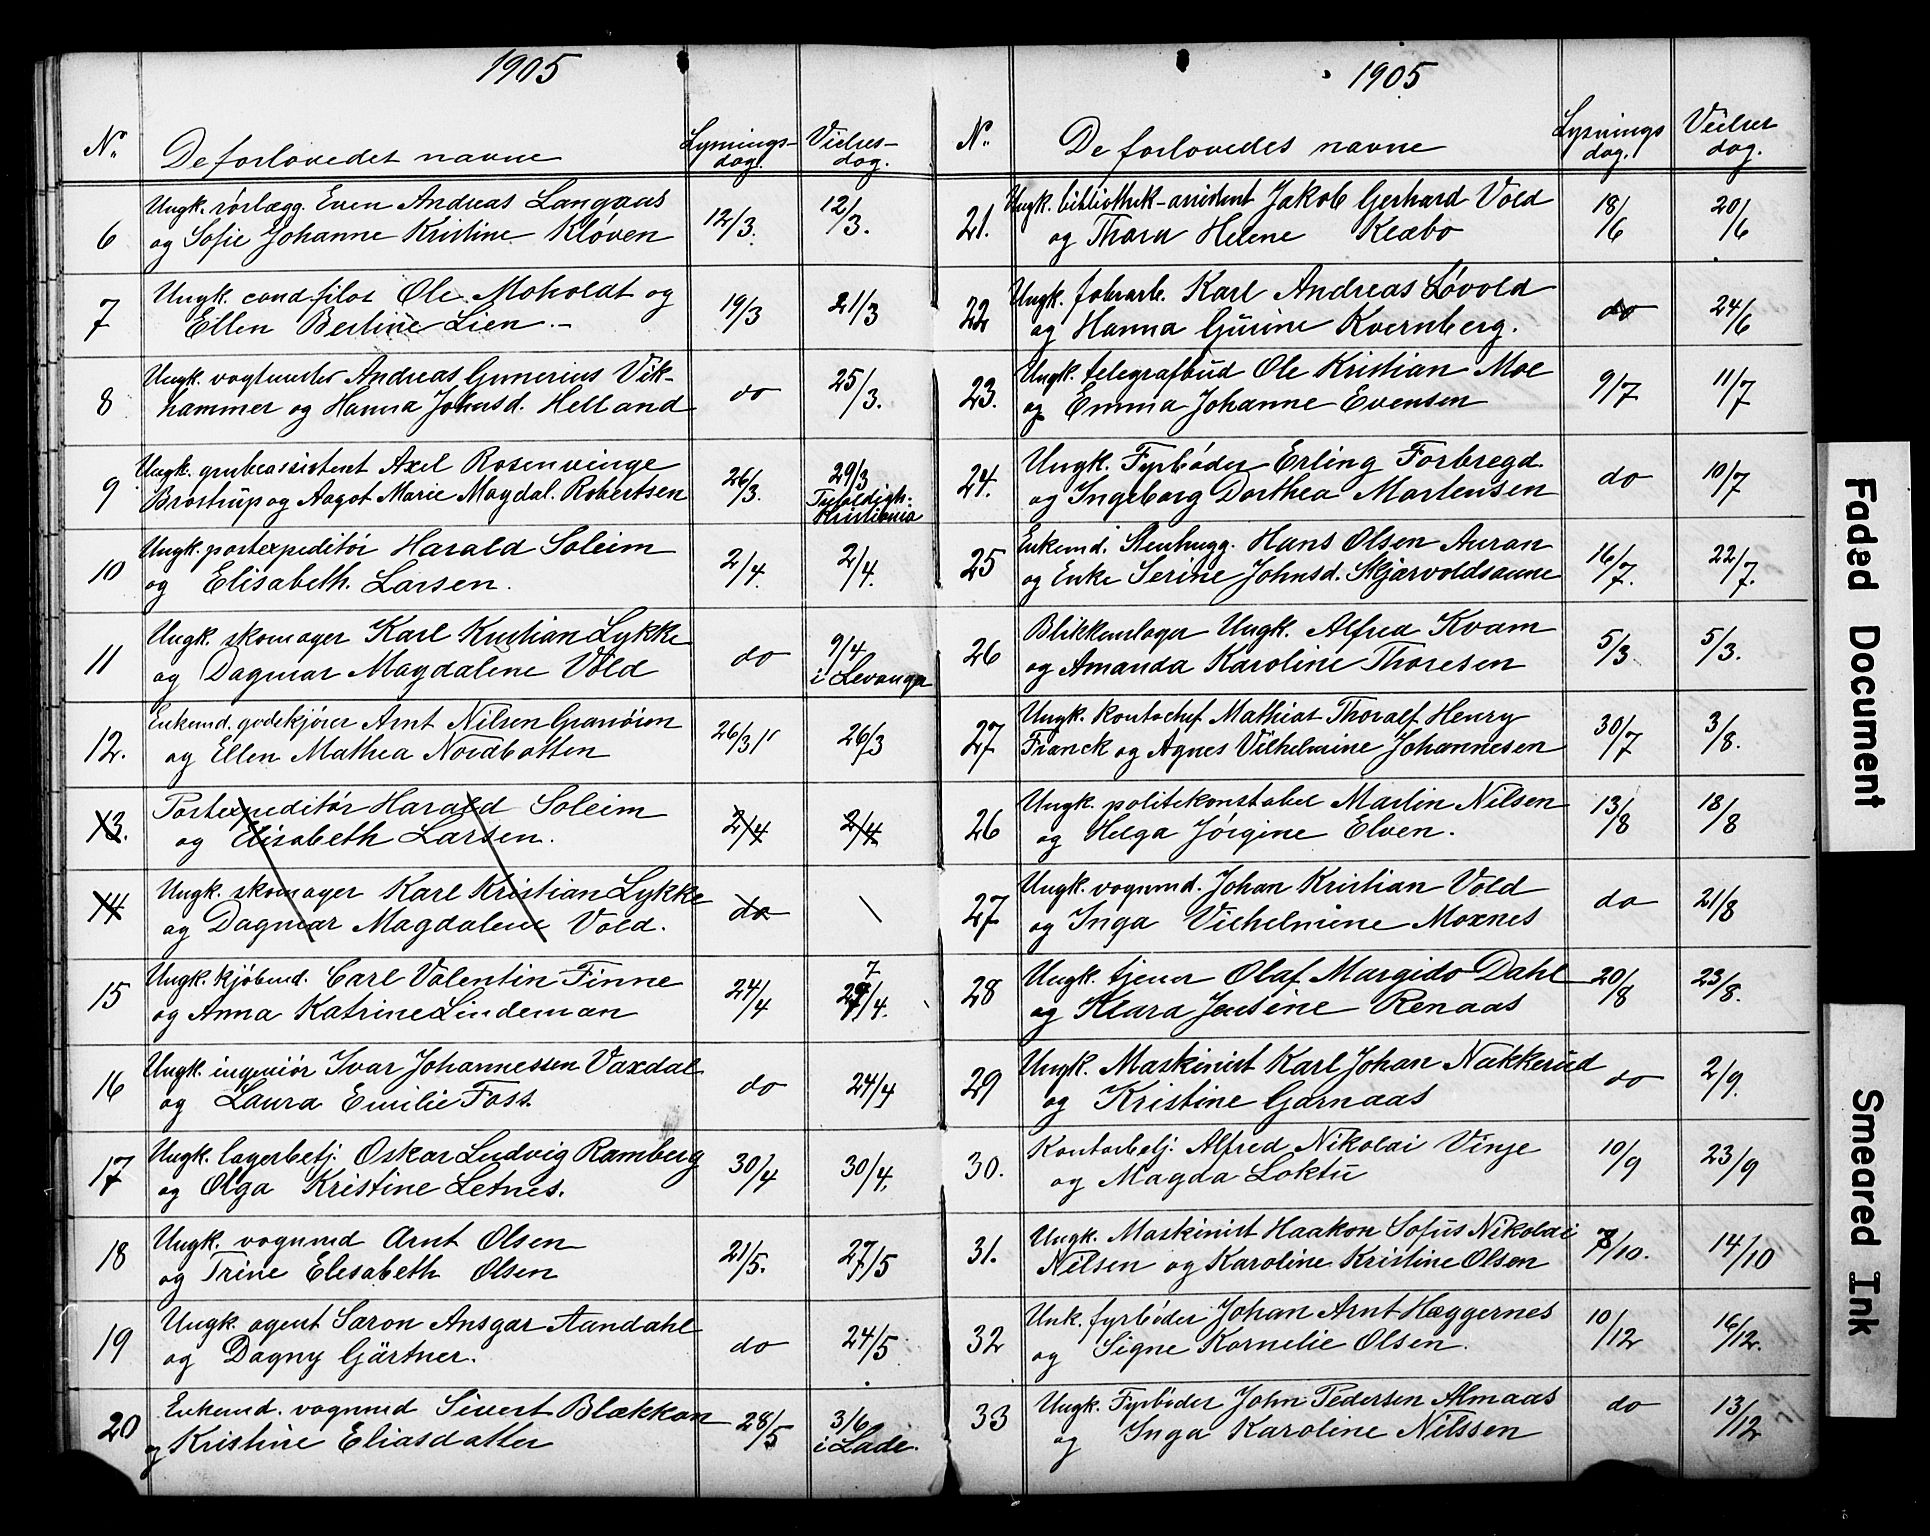 1905
N. De forlovedes navne Lysnings- Vielses-
dag. dag.
Ungk. rørlægg. Even Andreas Langaas
6 og Sofie Johanne Kristine Kløven 12/3. 12/3.
Ungk. cand. filos Ole Moholdt og
7 Ellen Bertine Lien.- 19/3 21/3
Ungk. vogtmester Andreas Gunerius Vik-
8 hammer og Hanna Johnsd. Helland do 25/3.
Ungk. grubeassistent Axel Rosenvinge
9 Brostrup og Aagot Marie Magdal. Robertsen 26/3. 29/3
Kristiania
Ungk. postexpeditør Harald Soleim
10 og Elisabeth. Larsen. 2/4. 2/4.
Ungk. skomager Karl Kristian Lykke
11 og Dagmar Magdalene Vold do 9/4
i Levanger
Enkemd. godskjører Arnt Nilsen Granöien
12. og Ellen Mathea Nordbotten 26/3 26/3
Postexpeditør Harald Soleim
13. og Elisabeth Larsen. 2/4 2/4
Ungk. skomager Karl Kristian Lykke
14 og Dagmar Magdalene Vold. do
Ungk. kjøbmd. Carl Valentin Finne
15 og Anna Katrine Lindeman 24/4 27/4.
Ungk. ingeniør Ivar Johannessen Vaxdal
16 og Laura Emilie Foss. do 24/4
Ungk. lagerbetj. Oskar Ludvig Ramberg
17 og Olga Kristine Letnes. 30/4 30/4.
Ungk. vognmd Arnt Olsen
18 og Trine Elesabeth Olsen 21/5. 27/5
Ungk. agent Saron Ansgar Aandahl
19 og Dagny Gärtner. do 24/5
Enkemd. vognmd Sivert Blækkan
20 og Kristine Eliasdatter 28/5 3/6
i Lade.
1905
N. De forlovedes navne Lysnings Vielses
dag. dag.
Ungk. bibliothek-assistent Jakob Gerhard Vold
21. og Thora Helene Klæbo 18/6 20/6
Ungk. fabrarb. Karl Andreas Løvold
22 og Hanna Gurine Kvernberg. do 24/6
Ungk. telegrafbud Ole Kristian Moe
23. og Emma Johanne Evensen 9/7 11/7
Ungk. Fyrbøder Erling Forbregd
24. og Ingeborg Dorthea Martensen do 10/7
Enkemd. Stenhugg. Hans Olsen Auran
25 og Enke Serine Johnsd. Skjærvoldsaune 16/7. 22/7.
Blikkenslager Ungk. Alfred Kvam
26 og Amanda Karoline Thoresen 5/3 5/3.
Ungk. kontochef Mathias Thoralf Henry
27 Franck og Agnes Vilhelmine Johannesen 30/7 3/8.
Ungk. politikonstabel Martin Nilsen
26 og Helga Jørgine Elven. 13/8 18/8
Ungk. vognmd. Johan Kristian Vold
27 og Inga Vilhelmine Moxnes do 21/8
Ungk. tjener Olaf Margido Dahl
28 og Klara Jensine Renaas 20/8 23/8.
Ungk. Maskinist Karl Johan Nakkerud
29 og Kristine Garnaas do 2/9.
Kontorbetj. Alfred Nikolai Vinje
30. og Magda Loktu 10/9 23/9
Ungk. Maskinist Haakon Sofus Nikolai
31. Nilsen og Karoline Kristine Olsen 8/10. 14/10
Unk. fyrbøder Johan Arnt Hæggernes
32 og Signe Kornelie Olsen. 10/12 16/12.
Ungk. Fyrbøder John Pedersen Almaas
33 og Inga Karoline Nilssen do 13/12
Faded Document
Smeared Ink